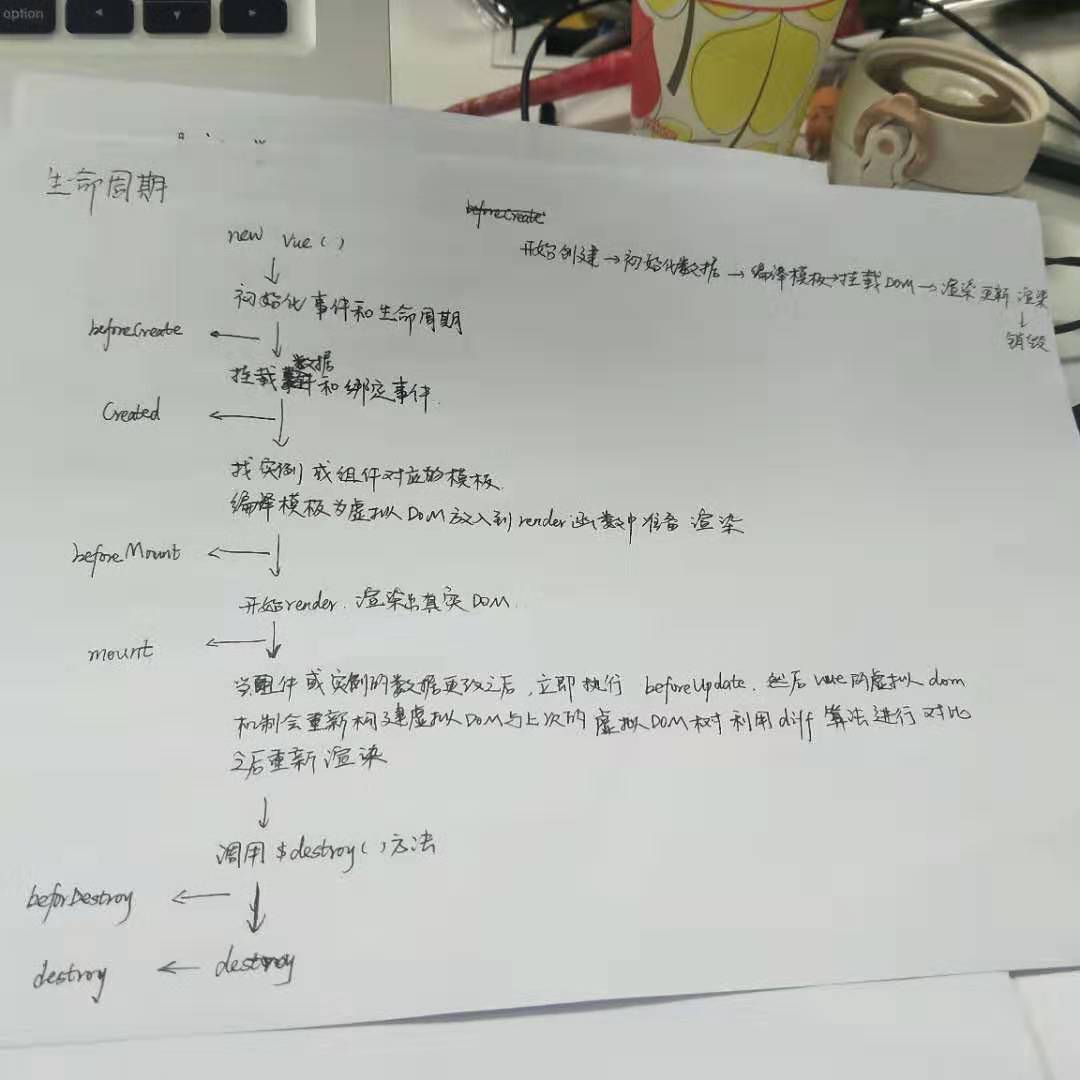 option
生命周期
beforeCreate
new Vue()
开始创建→初始化数据→编译模板→挂载DOM→渲染更新 渲染
↓
销毁
↓
初始化事件和生命周期
beforeCreate ← ↓
数据
挂载和绑定事件.
Created ← ↓
找实例或组件对应的模板.
编译模板为虚拟DOM放入到render函数中准备渲染
beforeMount ← ↓
开始render. 渲染出真实DOM.
mount ← ↓
当组件或实例的数据更改之后,立即执行 beforeUpdate. 然后vue的虚拟dom
机制会重新构建虚拟DOM与上次的虚拟DOM树利用diff算法进行对比
之后重新渲染
↓
调用 $destroy()方法
beforDestroy ← ↓
destroy ← destroy